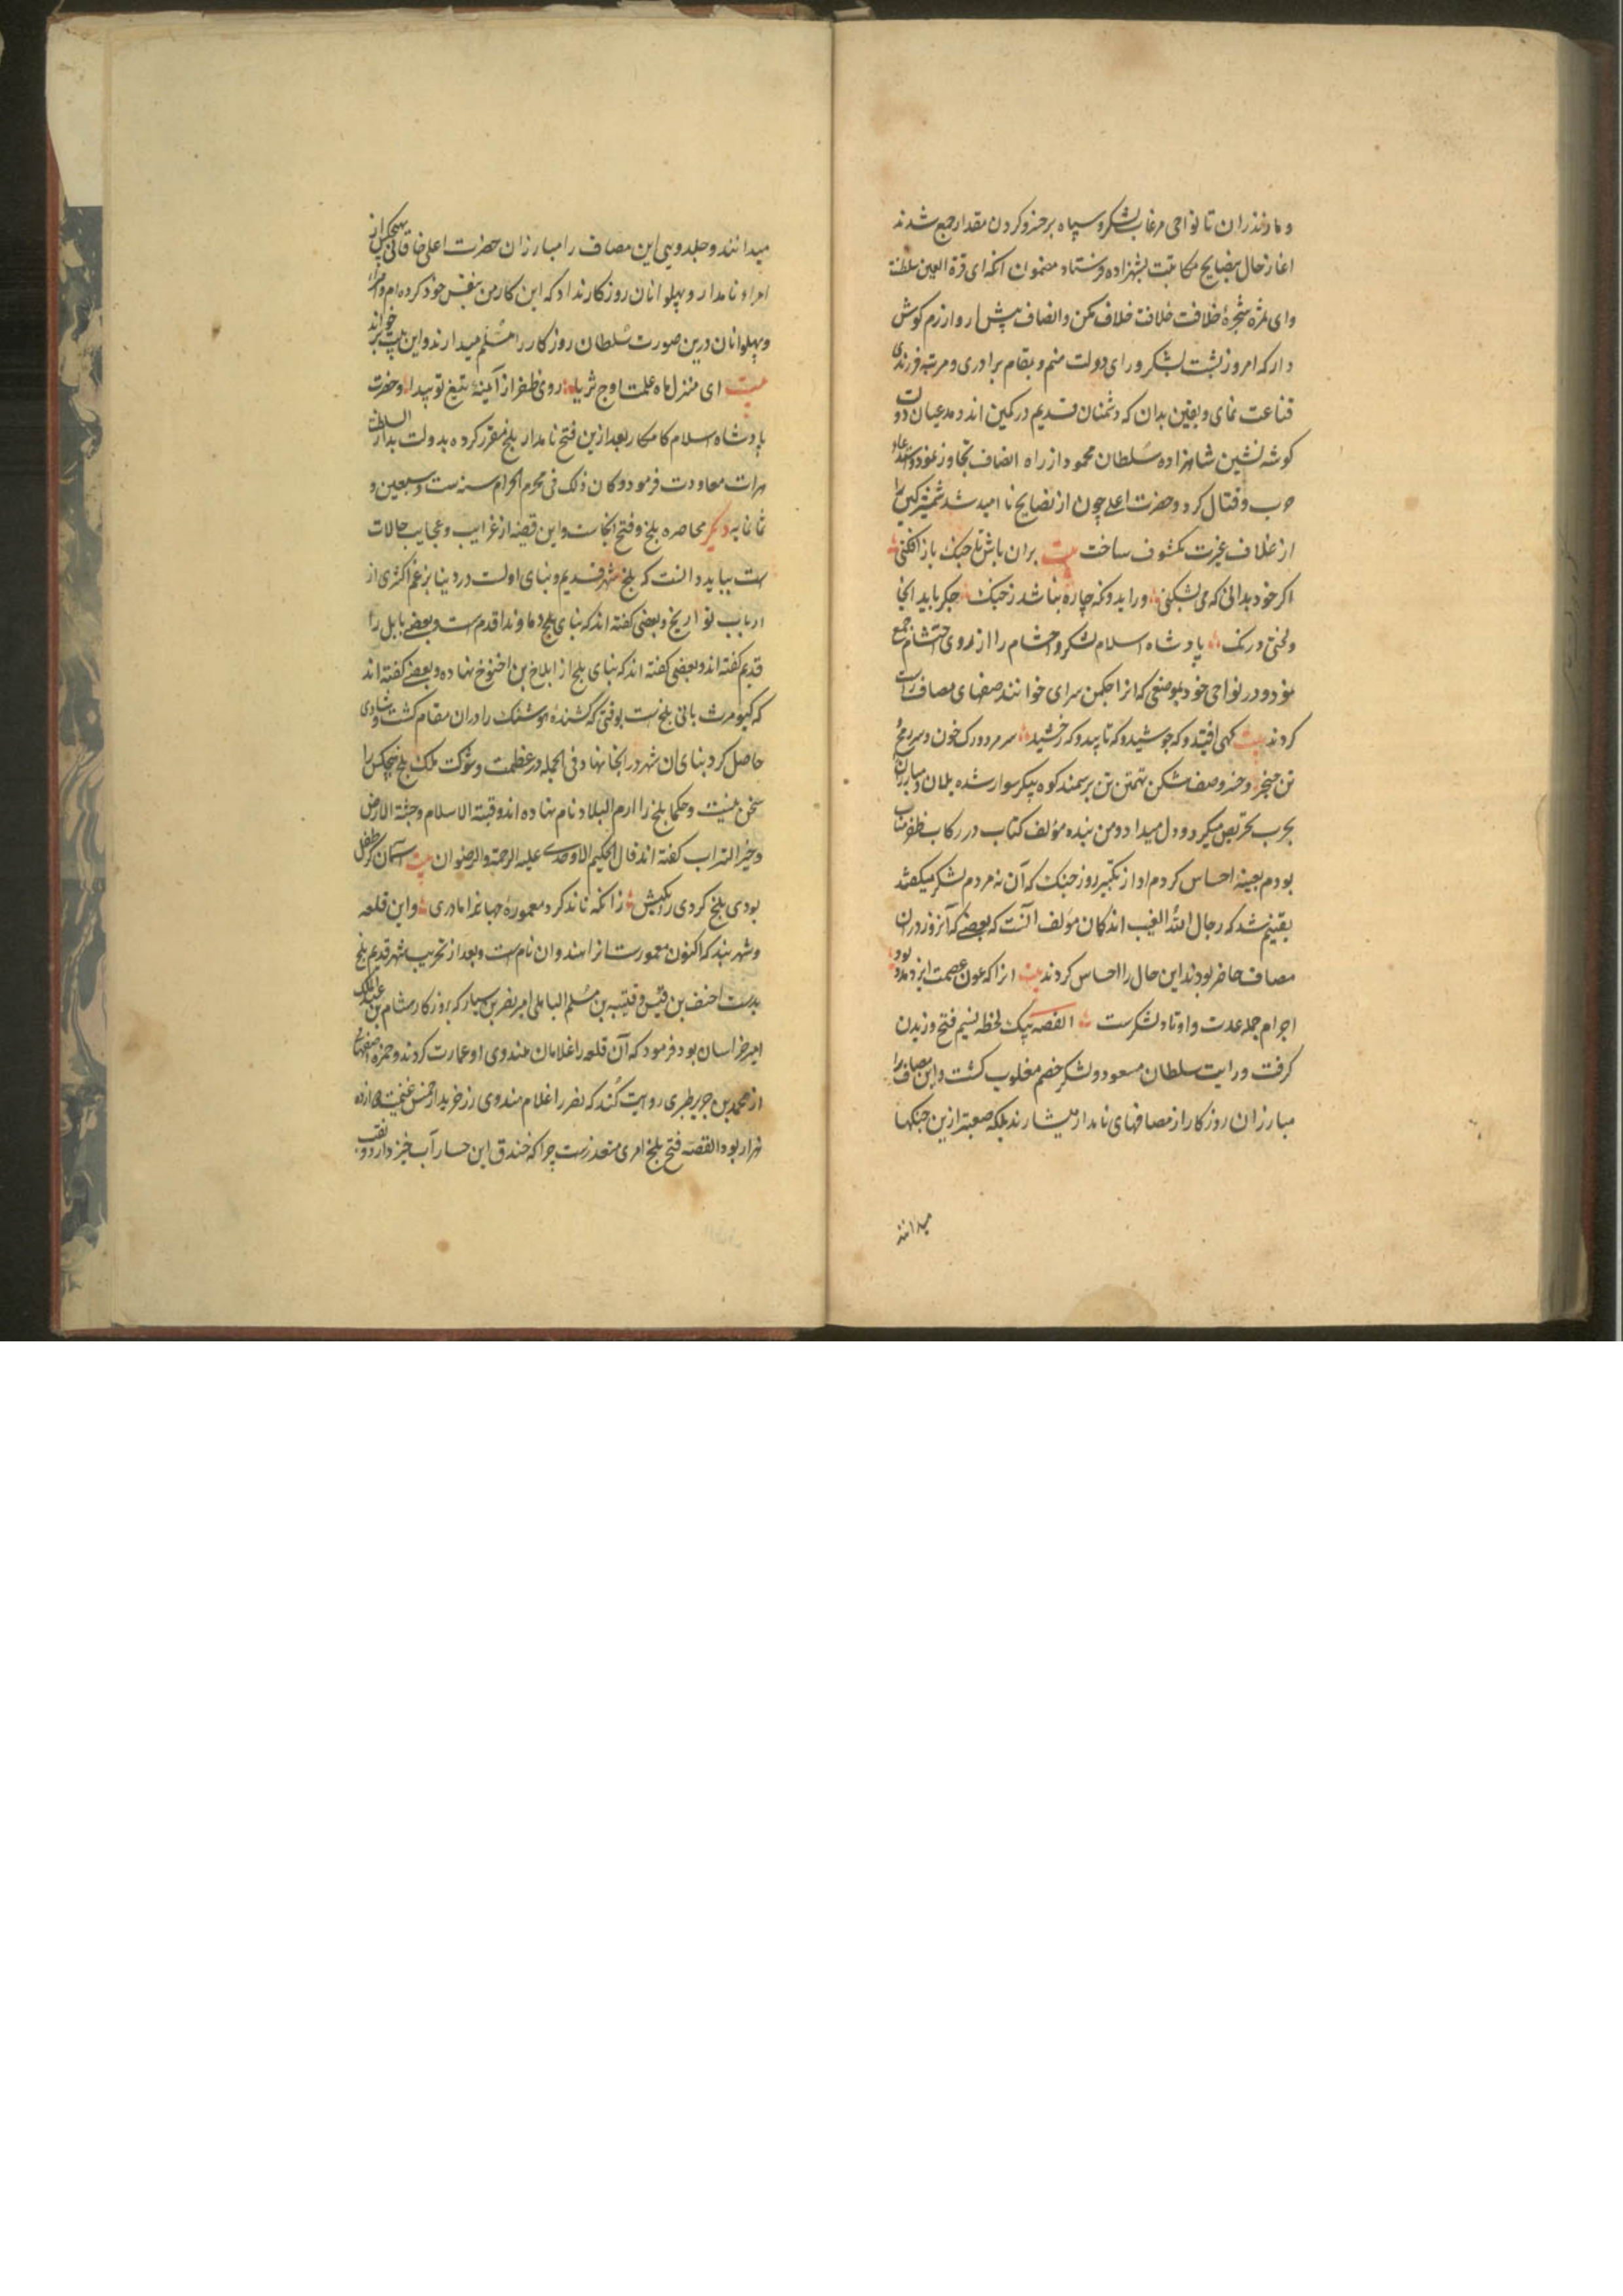 و مازندران تا نواحی مرغاب لشکر و سپاه برحسب و کردن مقدار جمع شدند
اغاز حال بنصایح مکاتبت بشهزاده فرستاد مضمون انکه ای قرة العین سلطنت
وای ثمره شجرهٔ خلافت خلافت خلاف مکن و انصاف پیش ار و ازرم کوش
دار که امروز پشت لشکر و رای دولت منم و بمقام برادری و مرتبه فرزندی
قناعت نمای و یقین بدان که دشمنان قدیم در کمین اند و مدعیان دولت
کوشه نشین شاهزاده سلطان محمود از راه انصاف تجاوز نمود و
حرب و قتال کرد و حضرت اعلی چون از نصایح ناامید شد شمشیر کین را
از غلاف غیرت مکشوف ساخت بیت بران باش تا جنک باز افکنی
اکر خود بدانی که می بشکنی ور ایدونکه چاره نباشد ز جنک جکر باید انجا
ولختی درنک پادشاه اسلام لشکر و احشام را از روی احتشام جمع
نمود و در نواحی خود بموضعی که انرا چکمن سرای خوانند صفهای مصاف راست
کردند بیت کهی افتید و که جوشید و که تابید و که رخشید سر مرد و رک خون و سر رمح
تن خنجر و خسرو صف شکن تهمتن تن بر سمند کوه پیکر سوار شده یلان و مبارزانرا
بحرب تحریص میکرد و دل میداد و من بنده مؤلف کتاب در رکاب ظفر مناب
بودم بعینه احساس کردم اواز تکبیر روز جنک که آن نه مردم لشکر میکفتند
یقینم شد که رجال الله الغیب اند کان مولف انست که بعضی که آنروز دران
مصاف حاضر بودند این حال را احساس کردند بیت انرا که عون عصمت ایزد مدد بود
اجرام جمله عدت و اوتاد لشکرست القصه بیک لحظه نسیم فتح وزیدن
کرفت و رایت سلطان مسعود و لشکر خصم مغلوب کشت و این مصاف را
مبارزان روزکار از مصافهای نامدار میشمارند بلکه صعبتر ازین جنکها
میدانند
میدانند و جلدویی این مصاف را مبارزان حضرت اعلی خاقانی بهیچکس از
امراء نامدار و پهلوانان روزکار نداد که این کار من بنفس خود کرده ام و امرا
و پهلوانان درین صورت سلطان روزکار را مسلم میدارند و این بیت برخواند
بیت ای منزل ماه علمت اوج ثریا روی ظفر از آینهٔ تیغ تو پیدا و حضرت
پادشاه اسلام کامکار بعد ازین فتح نامدار بلخ مقرر کرده بدولت بدار السلطنت
هرات معاودت فرمود و کان ذلک فی محرم الحرام سنه ست و سبعین و
ثمانمایه دیکر محاصره بلخ و فتح انجاست و این قصه از غرایب و عجایب حالات
است بباید دانست که بلخ شهر قدیم و بنای اولست در دنیا بزعم اکثری از
ارباب تواریخ و بعضی کفته اند که بنای بلخ دماوند اقدم است و بعضی بابل را
قدیم کفته اند و بعضی کفته اند که بنای بلخ از ابلاخ بن اخنوخ نهاده و بعضی کفته اند
که کیومرث بانی بلخ است بوقتی که کشندهٔ هوشنک را دران مقام کشت و شادی
حاصل کرد بنای ان شهر در انجا نهاد فی الجمله در عظمت و شوکت ملک بلخ هیچکس را
سخن نیست و حکما بلخ را ارم البلاد نام نهاده اند و قبة الاسلام و جنة الارض
و خیر التراب کفته اند قال الحکیم الاوحدی علیه الرحمة و الرضوان بیت آسمان کر طفل
بودی بلخ کردی دایکیش زانکه ناند کرد معمورهٔ جهانرا مادری و این قلعه
و شهر بند که اکنون معمورست انرا هندوان نام است و بعد از تخریب شهر قدیم بلخ
بدست احنف بن قیس و قتیبه بن مسلم الباهلی امیر نصر بن سیار که بروزکار هشام بن عبدالملک
امیر خراسان بود فرمود که آن قلعه را غلامان هندوی او عمارت کردند و حمزه اصفهانی
از محمد بن جریر طبری روایت کند که نصر را غلام هندوی زرخرید از خمس غنیمت دوازده
هزار بود القصه فتح بلخ امری متعذرست چرا که خندق این حصار آب خیز دارد و نقب